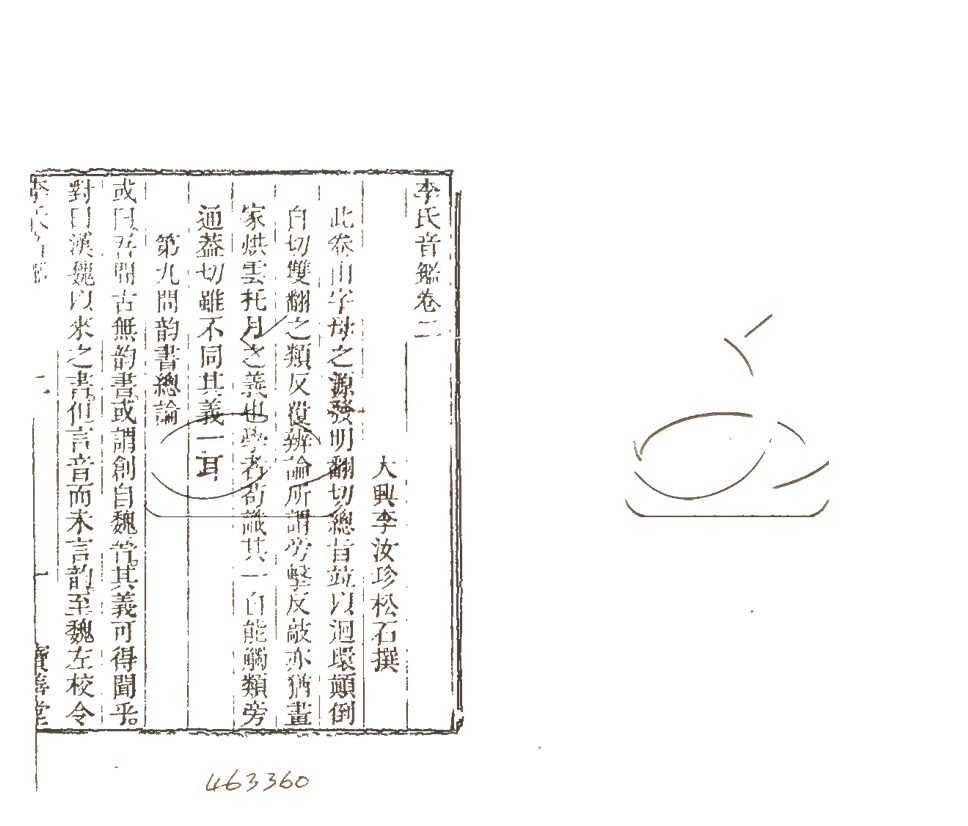 李氏音鑑卷二
大興李汝珍松石撰
此卷由字母之源發明翻切總旨並以迴環顛倒
自切雙翻之類反從辨論所謂旁擊反敲亦猶畫
家烘雲托月之義也學者茍識其一自能觸類旁
通葢切雖不同其義一耳
第九問韵書總論
或曰吾聞古無韵書或謂創自魏晉其義可得聞乎
對曰漢魏以來之書但言音而未言韵至魏左校令
李氏音鑑
二
一
寶善堂
463360